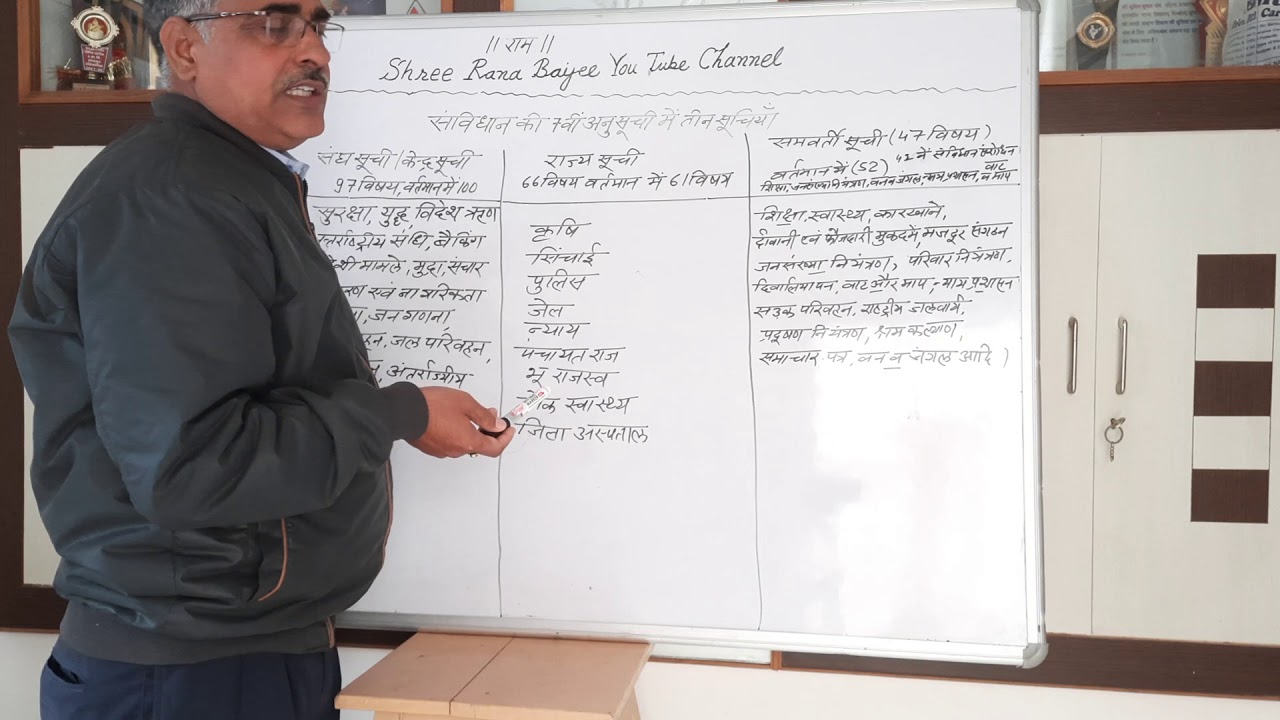 || राम ||
Shree Rana Baijee You Tube Channel
संविधान की 7वीं अनुसूची में तीन सूचियाँ
संघ सूची/केन्द्र सूची
97 विषय, वर्तमान में 100
सुरक्षा, युद्ध, विदेश ऋण
अन्तर्राष्ट्रीय संधि, बैंकिंग
मामले, मुद्रा, संचार
एवं नागरिकता
जनगणना,
जल परिवहन,
अंतर्राज्यीय
राज्य सूची
66 विषय वर्तमान में 61 विषय
कृषि
सिंचाई
पुलिस
जेल
न्याय
पंचायत राज
भू राजस्व
लोक स्वास्थ्य
जिला अस्पताल
समवर्ती सूची (47 विषय)
वर्तमान में (52) 42 वें संविधान संशोधन
बाद
शिक्षा, जनसंख्या नियंत्रण, वन व जंगल, न्याय प्रशासन, व माप
शिक्षा, स्वास्थ्य, कारखाने,
दीवानी एवं फौजदारी मुकदमे, मजदूर संगठन
जनसंख्या नियंत्रण, परिवार नियंत्रण,
दिवालियापन, बाट और माप, न्याय प्रशासन
सड़क परिवहन, राष्ट्रीय जलमार्ग,
प्रदूषण नियंत्रण, श्रम कल्याण,
समाचार पत्र, वन व जंगल आदि)